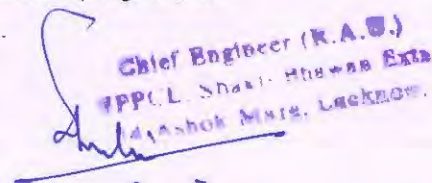 Chief Engineer (R.A.U.)
UPPCL, Shakti Bhawan Extn
14, Ashok Marg, Lucknow.